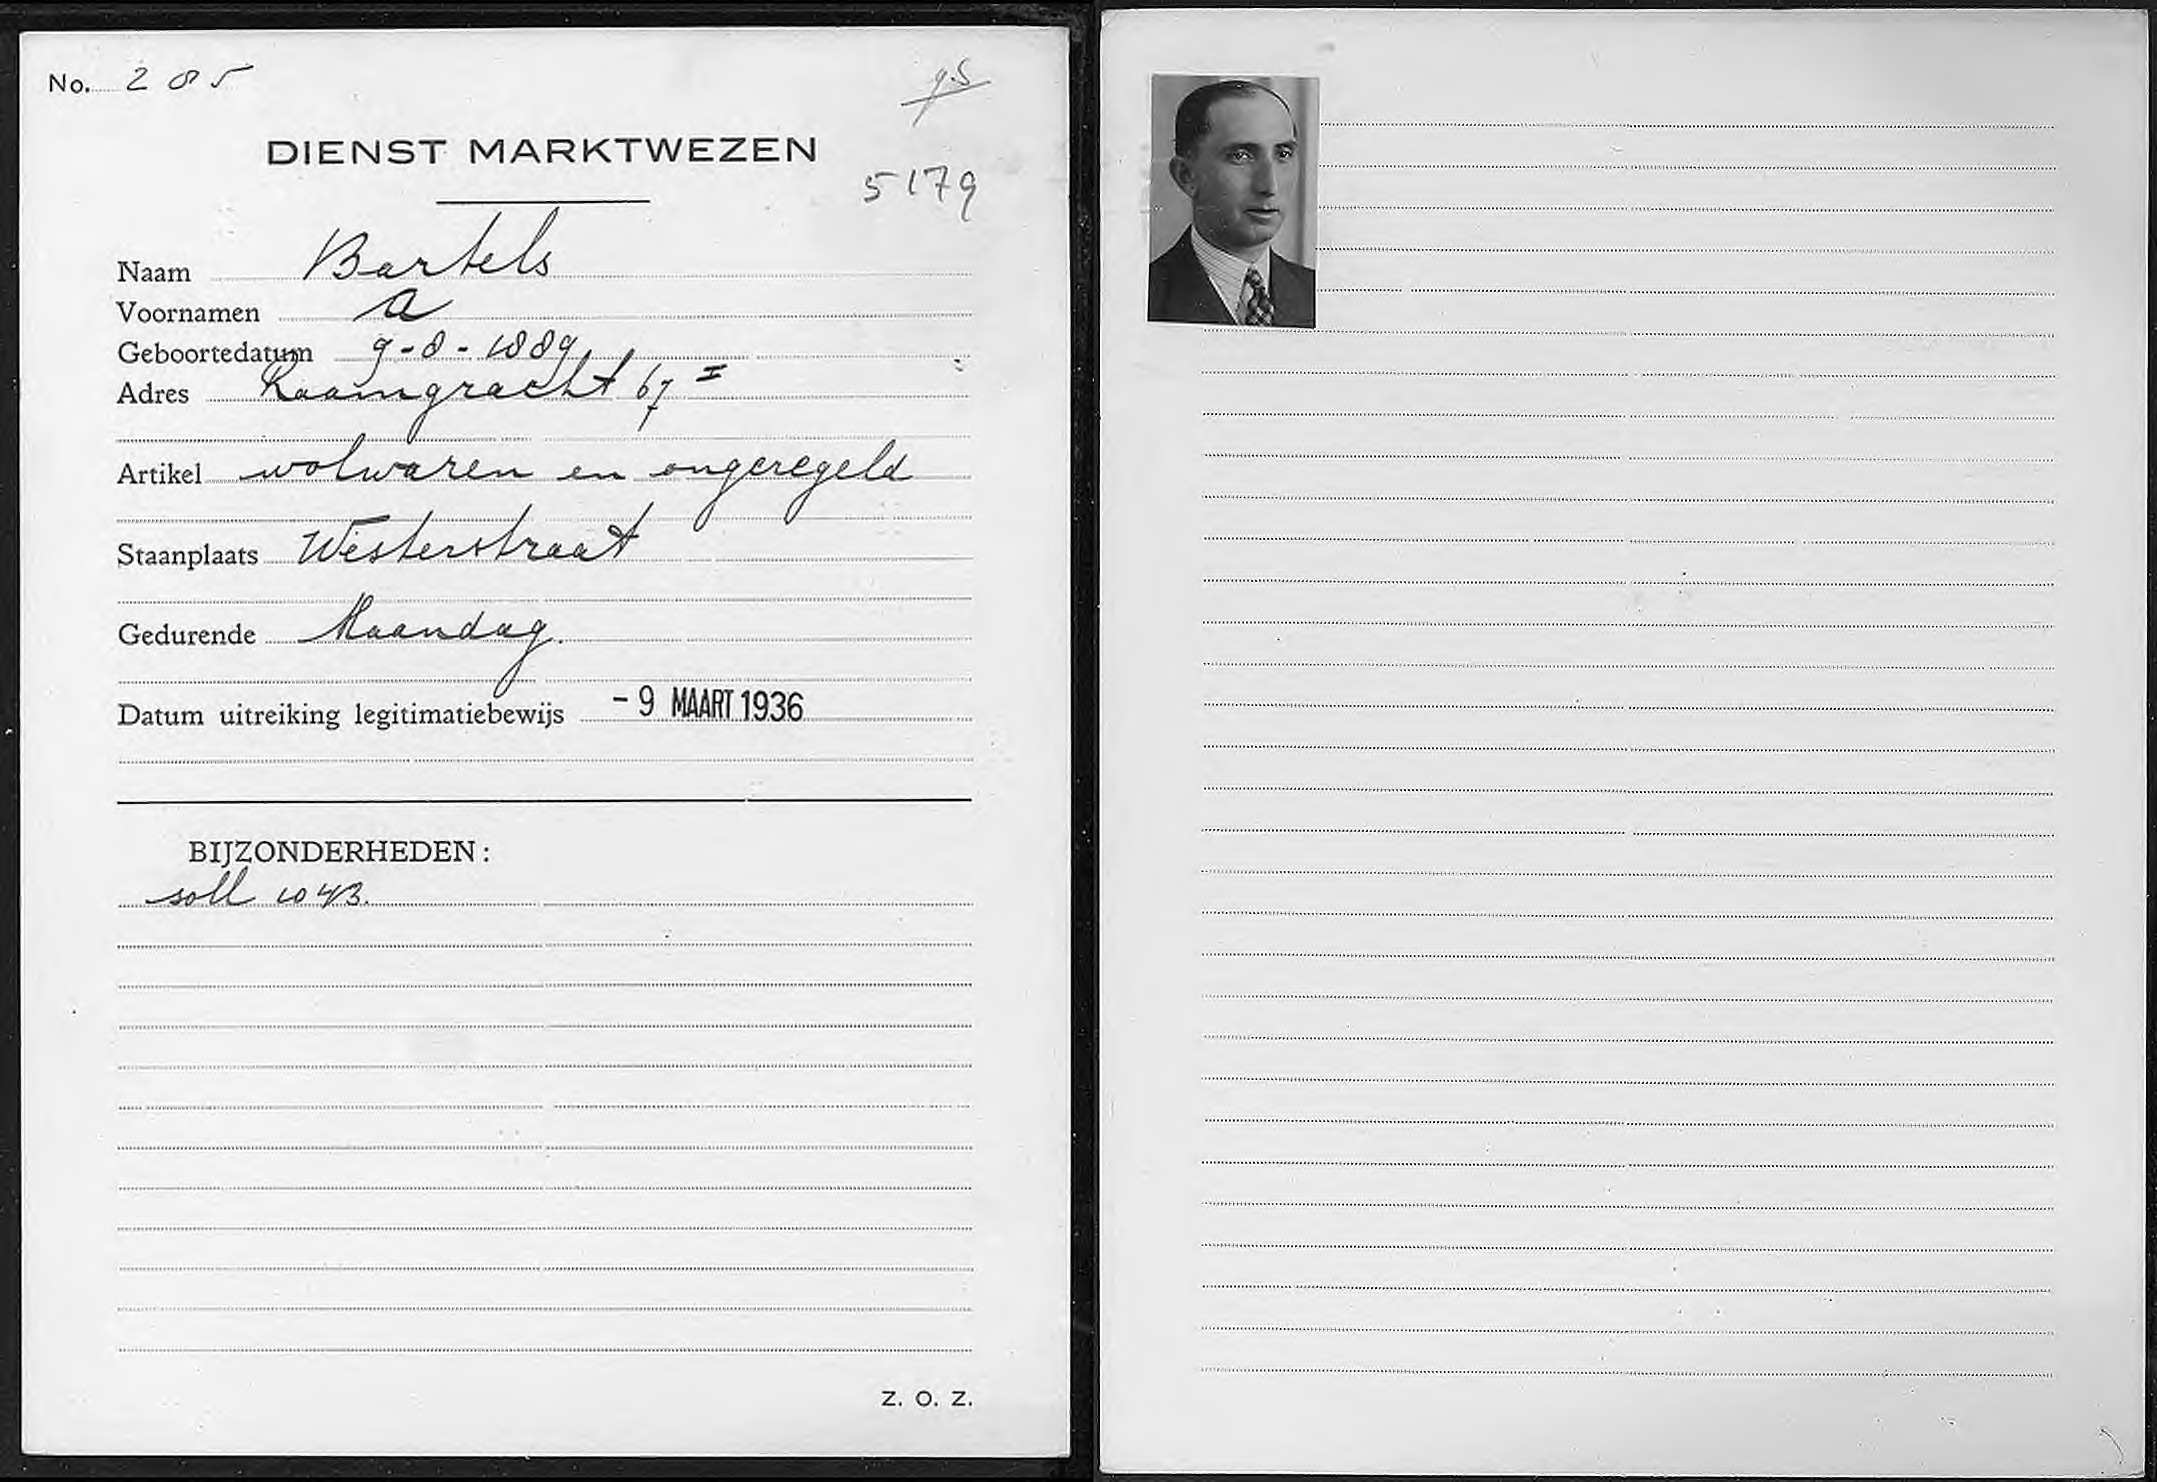 No. 285
DIENST MARKTWEZEN
5179
Naam Bartels
Voornamen A
Geboortedatum 9-8-1889
Adres Raamgracht 67 I
Artikel wolwaren en ongeregeld
Staanplaats Westerstraat
Gedurende Maandag.
Datum uitreiking legitimatiebewijs - 9 MAART 1936
BIJZONDERHEDEN:
soll 1043.
Z. O. Z.